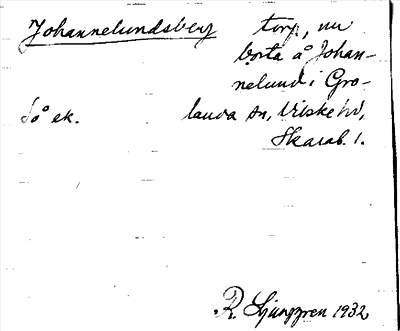 Johannelundsberg torp, nu
borta å Johan-
nelund i Gro-
Så ek. landa sn, Vilske hd,
Skarab. l.
R. Ljunggren 1932